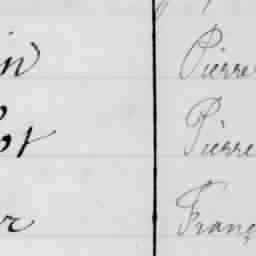 in Pierre
ot Pierre
r Franç